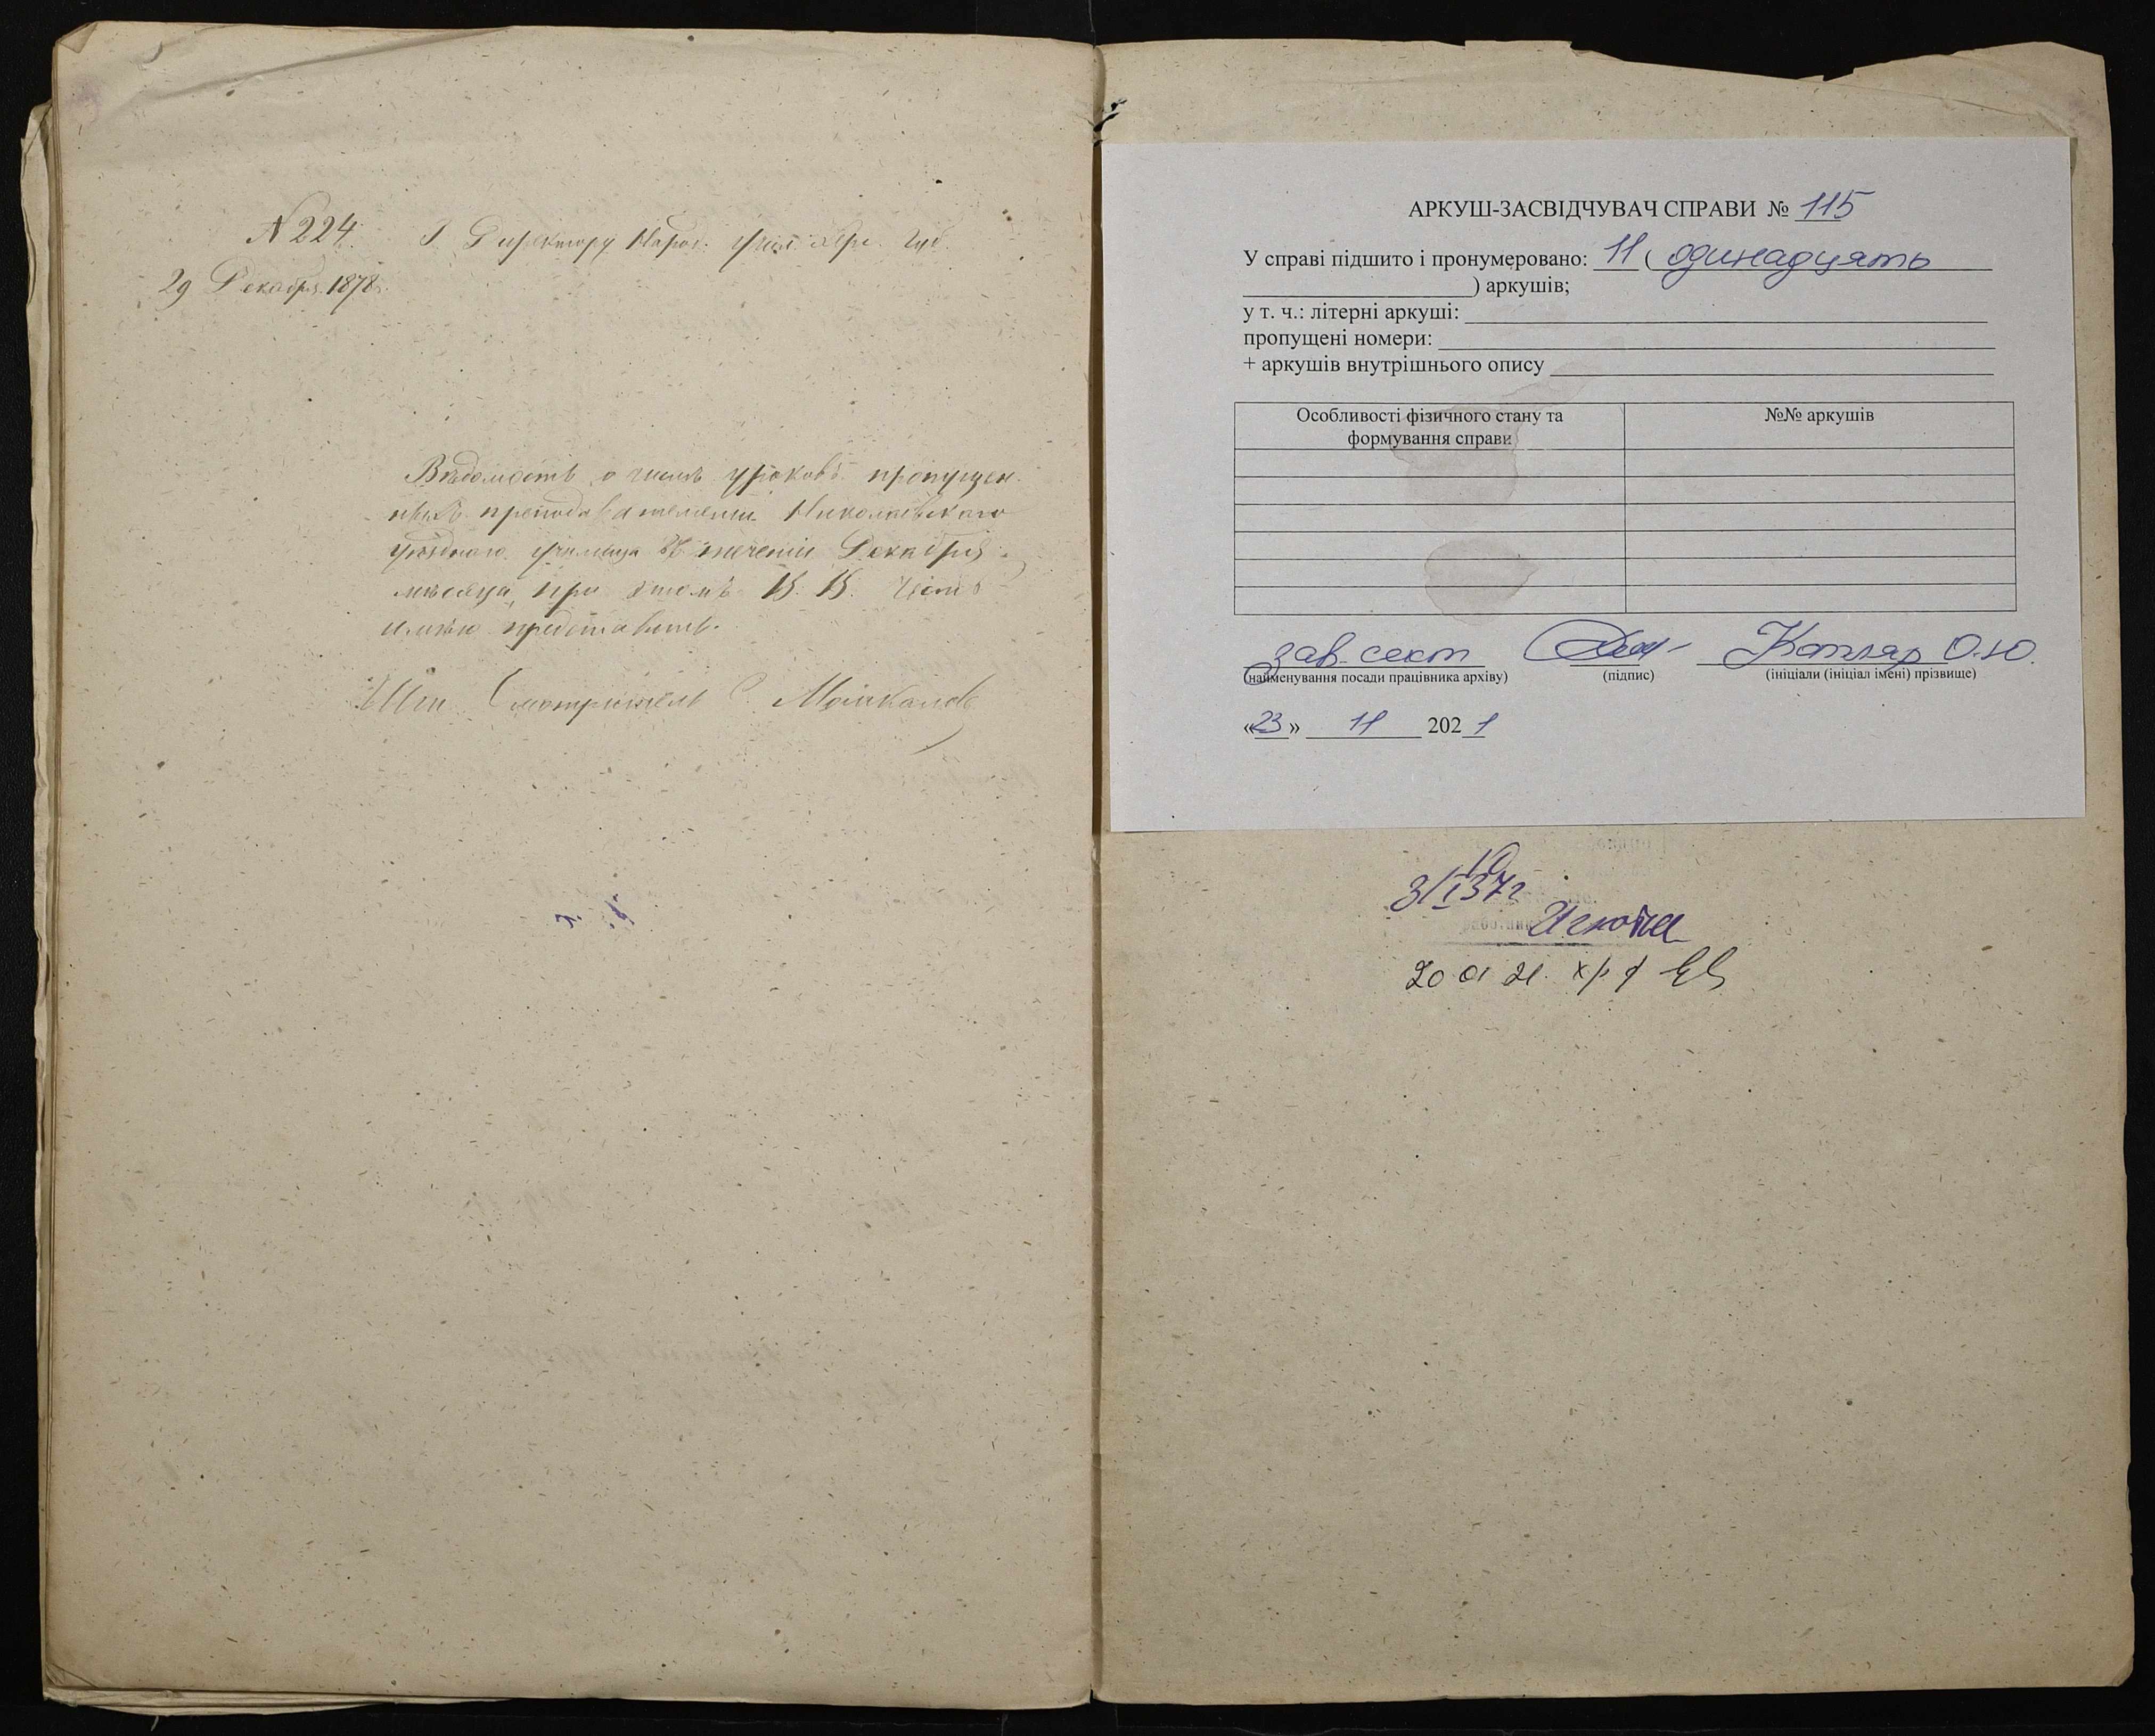 N 224.
29 Декабря 1878.
Г. Директору Народ. Учил. Хер. Губ.
Вѣдомость о числѣ уроковъ пропущен-
ныхъ преподавателями Николаевскаго
уѣзднаго училища въ теченіи Декабря
мѣсяца, при этомъ В. В. честь
имѣю представить.
Смотритель
АРКУШ-ЗАСВІДЧУВАЧ СПРАВИ № 115
У справі підшито і пронумеровано: 11 ( одинадцять
) аркушів;
у т. ч.: літерні аркуші:
пропущені номери:
+ аркушів внутрішнього опису
Особливості фізичного стану та
формування справи
№№ аркушів
зав. сект Котляр О.Ю.
(найменування посади працівника архіву) (підпис) (ініціали (ініціал імені) прізвище)
«23» 11 2021